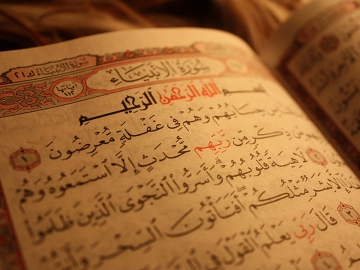 سورة الأنبياء ٢١
سُورَةُ الْأَنْبِيَاءِ
بِسْمِ اللَّهِ الرَّحْمَنِ الرَّحِيمِ
حِسَابُهُمْ وَهُمْ فِي غَفْلَةٍ مُعْرِضُونَ ١
مِنْ ذِكْرٍ مِنْ رَبِّهِمْ مُحْدَثٍ إِلَّا اسْتَمَعُوهُ وَهُمْ
لَاهِيَةً قُلُوبُهُمْ وَأَسَرُّوا النَّجْوَى الَّذِينَ ظَلَمُوا
إِلَّا بَشَرٌ مِثْلُكُمْ أَفَتَأْتُونَ السِّحْرَ
قَالَ رَبِّي يَعْلَمُ الْقَوْلَ فِي